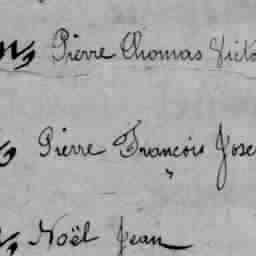 Pierre Thomas Victo
Pierre François Jose
Noël Jean